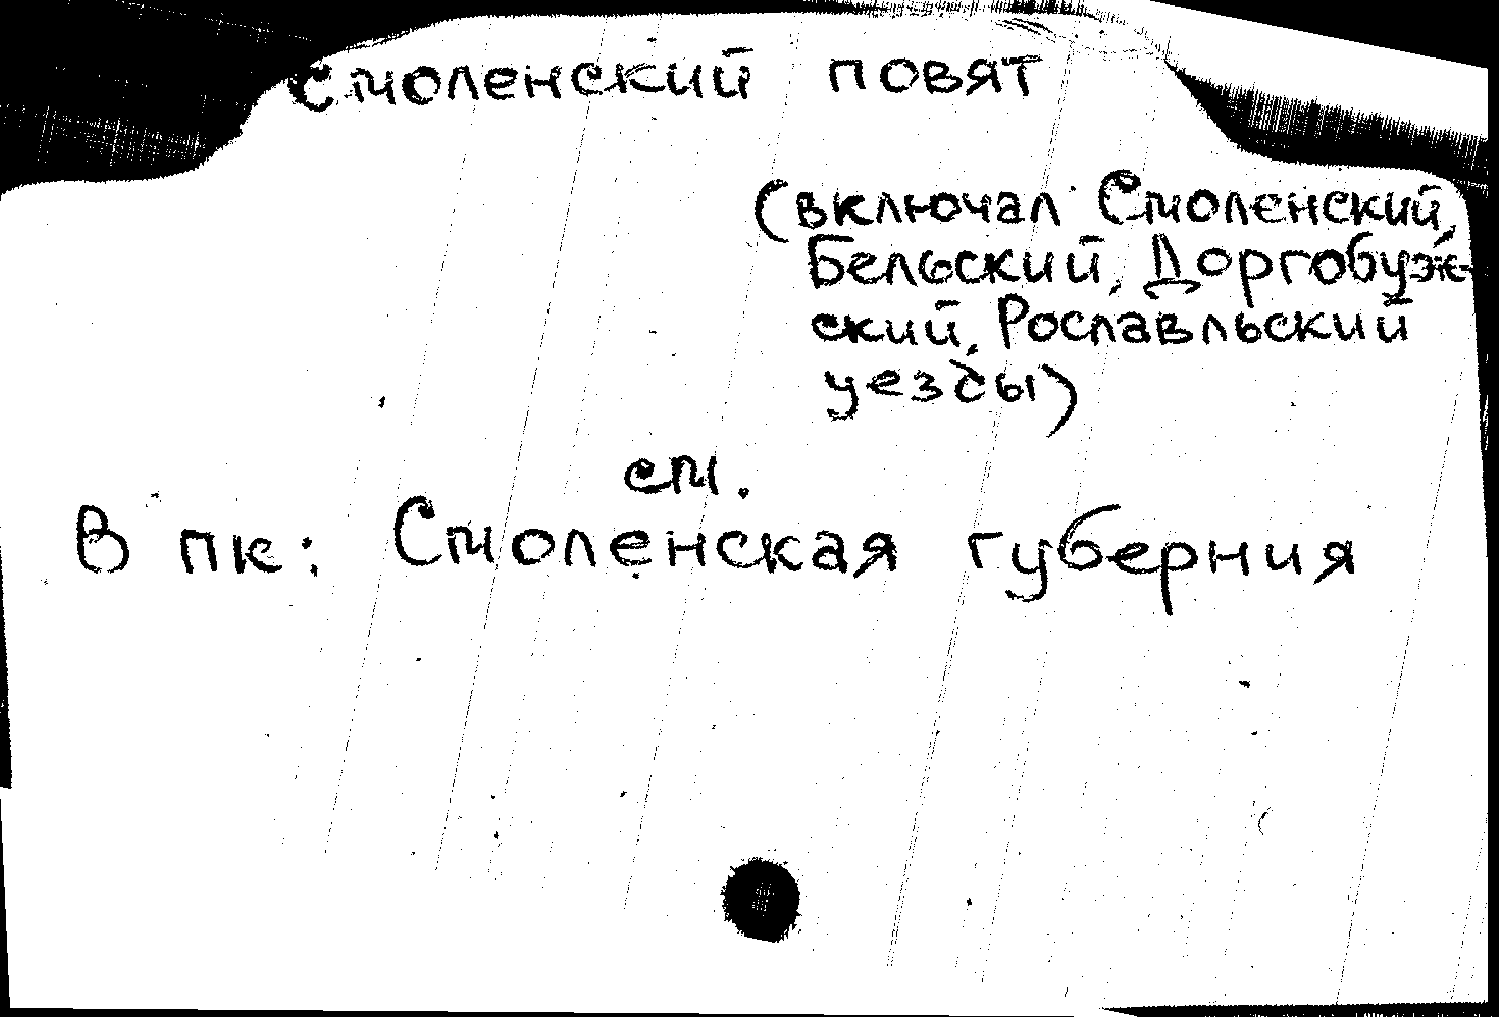 Смоленский повят
(включал Смоленский,
Бельский, Доргобуж-
ский, Рославльский
уезды)
см.
В пк: Смоленская губерния